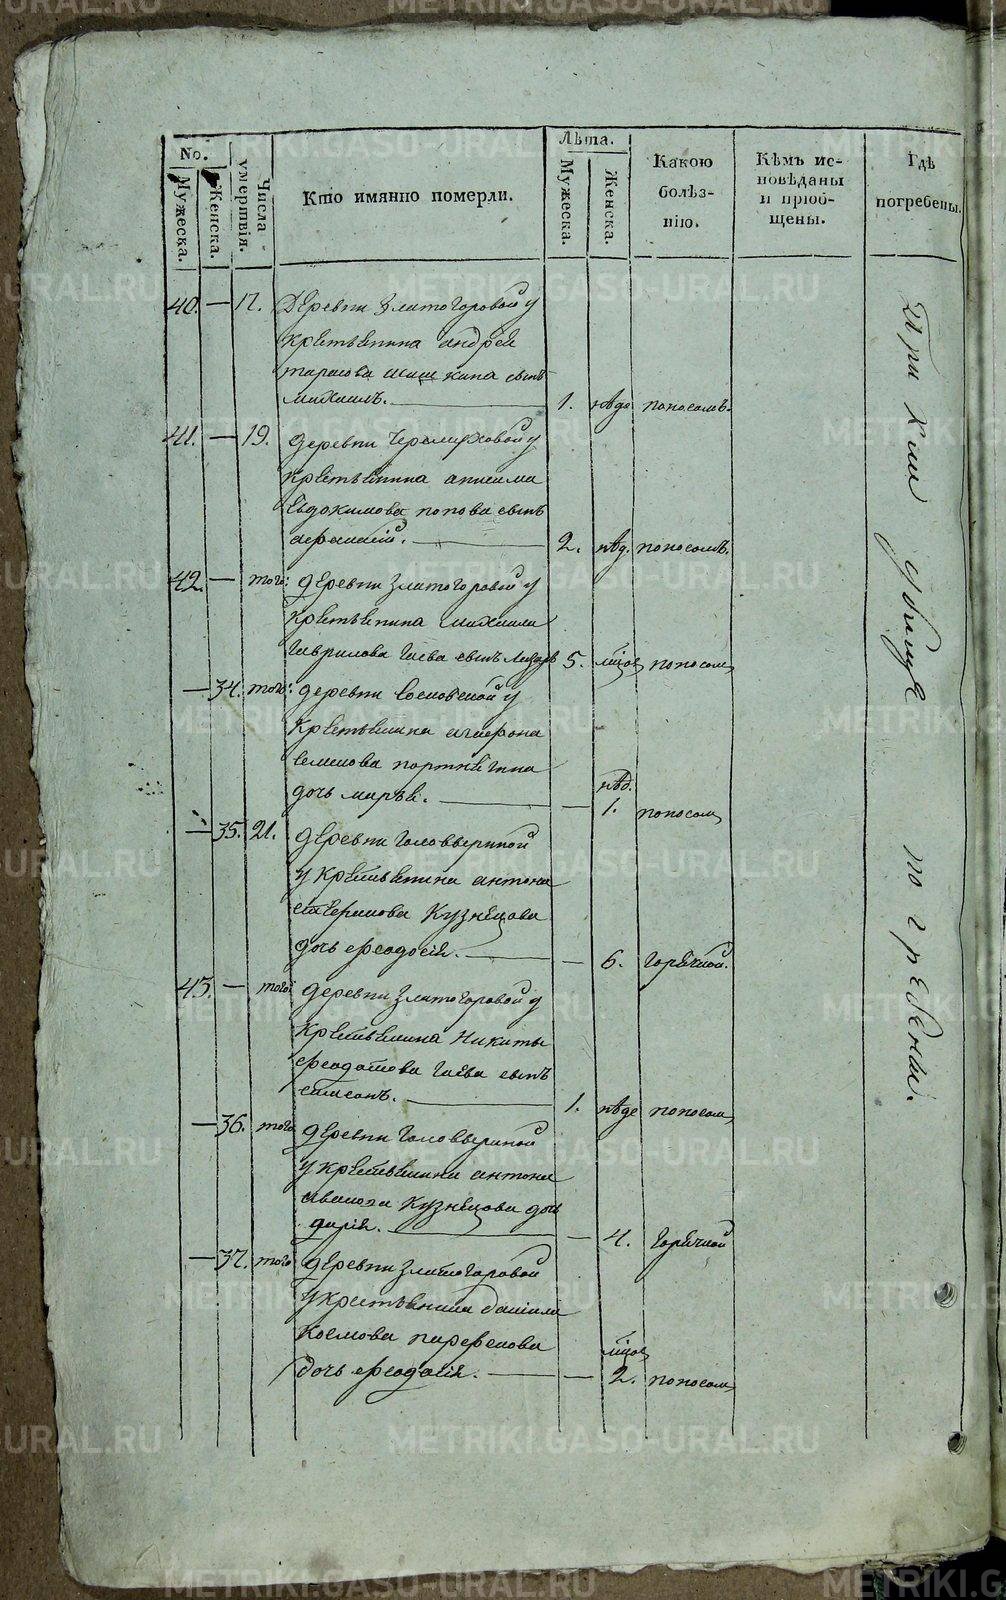 No.
Мужеска.
Женска.
Числа умертвія.
Кто имянно померли.
Лѣта.
Мужеска.
Женска.
Какою болѣз-
нію.
Кѣмъ ис-
повѣданы
и пріоб-
щены.
Гдѣ
погребены.
40. — 17. Деревни Златогоровой у
крестьянина андрея
тарасова сынъ
михаилъ. — 1. нѣде поносомъ.
41. — 19. деревни Черемуховой у
крестьянина анисима
Евдокимова попова сынъ
афанасій. — 2. нѣд. поносомъ.
42. — того: деревни Златогоровой у
крестьянина михаила
Гаврилова Гаева сынъ Лазарь 5. поносом
— 34. того: деревни Сосновской у
крестьянина
семенова портнягина
дочь марья. — — нѣд. 1. поносом
— 35. 21. деревни Головыриной
у крестьянина антона
Кузнецова
дочь феодосія. — — 6. горячкой.
43. — того деревни Златогоровой у
крестьянина Никиты
феодотова Гаева сынъ
самсонъ. — 1. нѣде поносом
— 36. того деревни Головыриной
у крестьянина антона
иванова Кузнецова дочь
дарія. — — 4. горячкой
— 37. того деревни Златогоровой
у крестьянина данила
Космова парфенова
дочь феодосія. — — 2. поносом
При погребены.